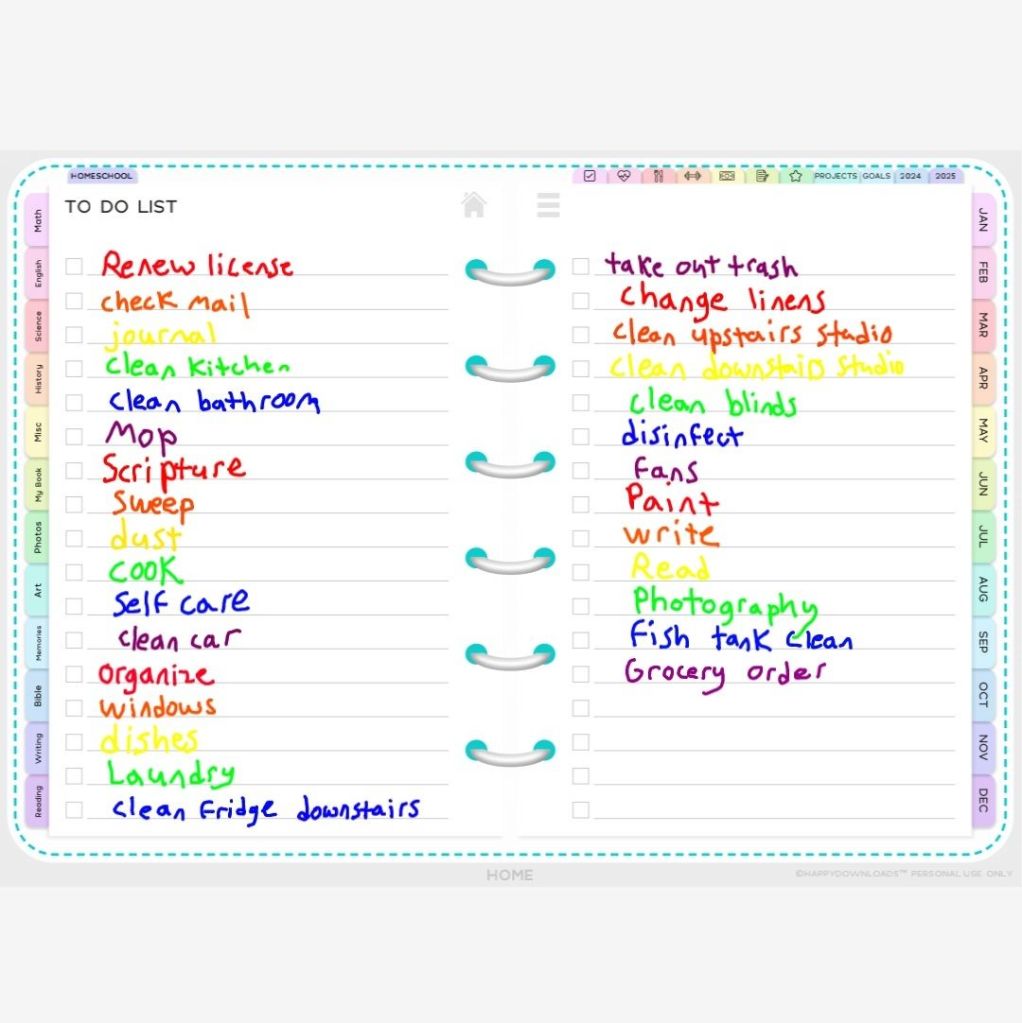 HOMESCHOOL
PROJECTS GOALS 2024 2025
TO DO LIST
Renew license
check mail
journal
clean kitchen
clean bathroom
Mop
Scripture
Sweep
dust
cook
Self care
clean car
organize
windows
dishes
Laundry
clean fridge downstairs
take out trash
Change linens
clean upstairs studio
clean downstairs studio
clean blinds
disinfect
Fans
Paint
write
Read
Photography
Fish tank clean
Grocery order
Math
English
Science
History
Misc
My Book
Photos
Art
Memories
Bible
Writing
Reading
JAN
FEB
MAR
APR
MAY
JUN
JUL
AUG
SEP
OCT
NOV
DEC
HOME
©HAPPYDOWNLOADS™ PERSONAL USE ONLY